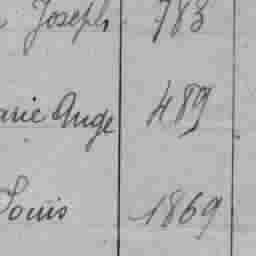 Joseph 783
arie Ange 489
Louis 1869